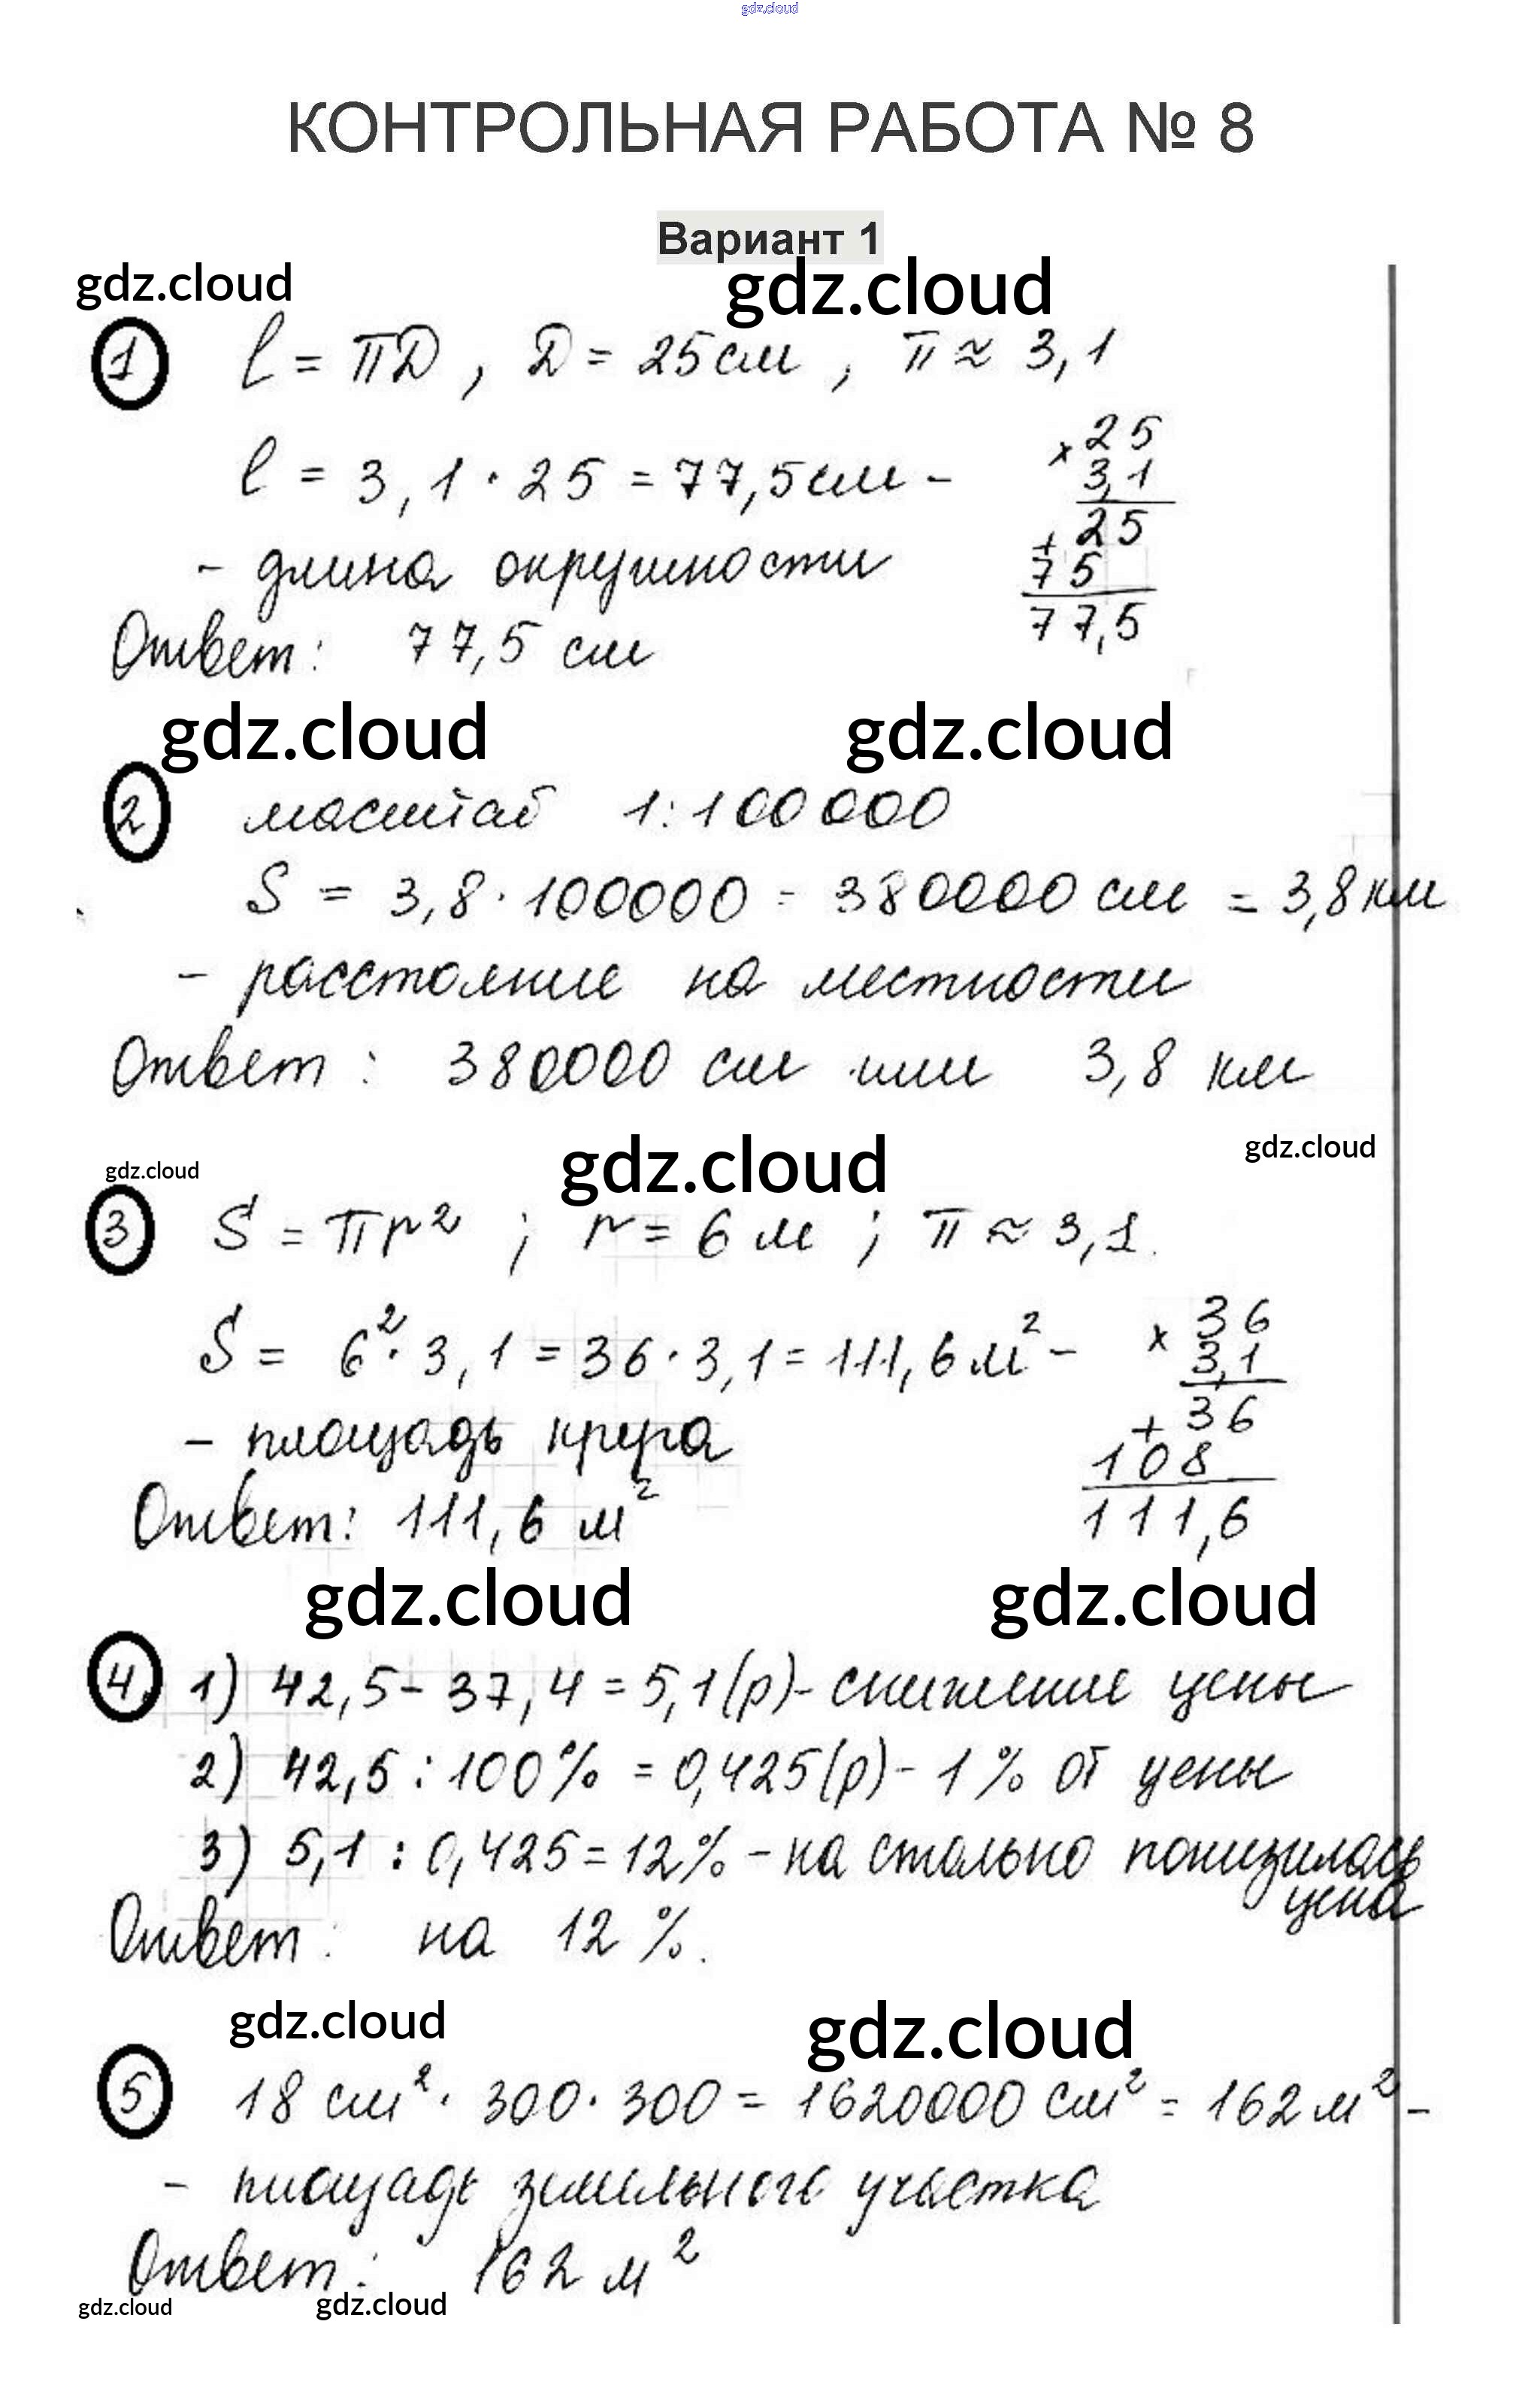 gdz.cloud
КОНТРОЛЬНАЯ РАБОТА № 8
Вариант 1
gdz.cloud gdz.cloud
1 l = πD, D = 25 см, π ≈ 3,1
l = 3,1 · 25 = 77,5 см -
× 25
3,1
+ 25
75
77,5
- длина окружности
Ответ: 77,5 см
gdz.cloud gdz.cloud
2 масштаб 1:100000
S = 3,8 · 100000 = 380000 см = 3,8 км
- расстояние на местности
Ответ: 380000 см или 3,8 км
gdz.cloud gdz.cloud gdz.cloud
3 S = πr²; r = 6 м; π ≈ 3,1.
S = 6² · 3,1 = 36 · 3,1 = 111,6 м² -
× 36
3,1
+ 36
108
111,6
- площадь круга
Ответ: 111,6 м²
gdz.cloud gdz.cloud
4 1) 42,5 - 37,4 = 5,1 (р) - снижение цены
2) 42,5 : 100% = 0,425 (р) - 1% от цены
3) 5,1 : 0,425 = 12% - на столько понизилась
цена
Ответ: на 12%.
gdz.cloud gdz.cloud
5 18 см² · 300 · 300 = 1620000 см² = 162 м² -
- площадь земельного участка
Ответ: 162 м²
gdz.cloud gdz.cloud